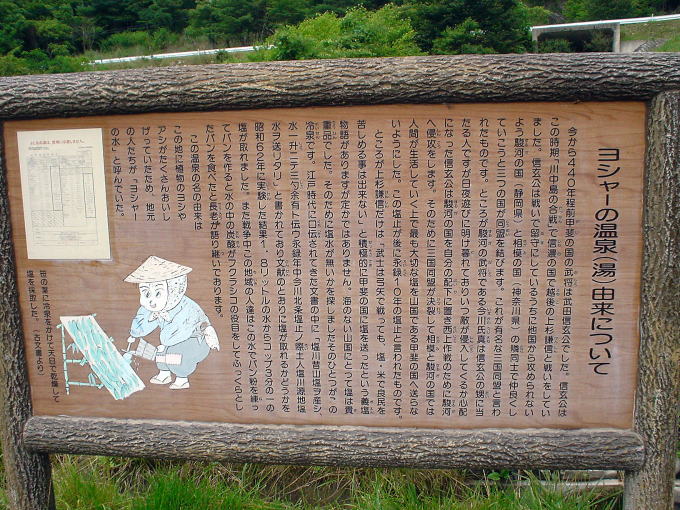 ヨシャーの温泉(湯)由来について
今から440年程前甲斐の国の武将は武田信玄公でした。信玄公は
この時期「川中島の合戦」で信濃の国で越後の上杉謙信と戦いをしてい
ました。信玄公は戦いで留守にしているうちに他国から攻められない
よう駿河の国(静岡県)と相模の国(神奈川県)の隣同士で仲良くし
ていこうと三つの国が同盟を結びます。これが有名な三国同盟と言わ
れたものです。ところが駿河の武将である今川氏真は信玄公の甥に当
たる人ですが日夜遊びに明け暮れておりいつ敵が侵入してくるか心配
になった信玄公は駿河の国を自分の配下に置き西上作戦のために駿河
へ侵攻をします。そのために三国同盟が決裂して相模と駿河の国では
人間が生活していく上で最も大切な塩を山国である甲斐の国へ送らな
いようにした。この塩止が後に永録10年の塩止と言われたものです。
ところが上杉謙信だけは「武士は弓矢で戦っても、塩・米で良民を
苦しめる事は出来ない」と積極的に甲斐の国に塩を送ったという義塩
物語がありますが定かではありません。海のない山国にとって塩は貴
重品でした。そのために塩水が無いかを探しましたそのひとつが、この
冷泉です。江戸時代に口伝されてきた文書の中に「塩川昔山塩ヲ産シ、
水一升ニテ三勺余有ト伝う永録年中今川北条塩止ノ際土人塩川源地塩
水ヲ送リタリ」と書かれており文献のとおりに塩が取れるかどうかを
昭和62年に実験した結果1.8リットルの水からコップ3分の一の
塩が取れました。また戦争中この地域の人達はこの水でパン粉を練っ
てパンを作ると水の中の炭酸がフクラシコの役目をしてふっくらとし
たパンを食べたと長老が語り継いでおります。
この温泉の名の由来は
この地に植物のヨシや
アシがたくさんおいし
げっていたため、地元
の人たちが「ヨシャー
の水」と呼んでいた。
笹の葉に冷泉をかけて天日で乾燥して
塩を採取した。(古文書より)